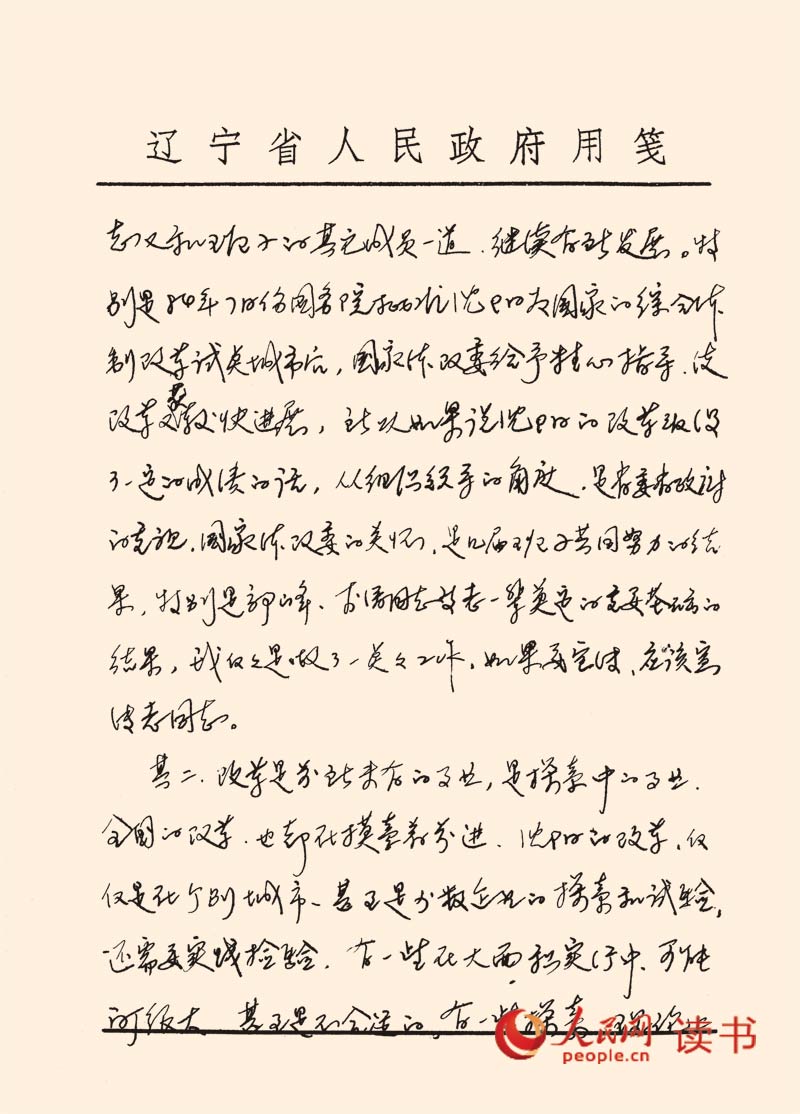 辽宁省人民政府用笺
志又和班子的其它成员一道、继续有所发展。特
别是84年7月份国务院批准沈阳为国家的综合体
制改革试点城市后，国家体改委给予精心指导、使
改革获较快进展，所以如果说沈阳的改革取得
了一定的成绩的话，从组织领导的角度、是省委省政府
的重视、国家体改委的关怀、是几届班子共同努力的结
果，特别是郭峰、李涛同志等老一辈奠定的重要基础的
结果，我仅仅是做了一点点工作，如果要宣传、应该宣
传老同志。
其二、改革是前所未有的事业，是探索中的事业、
全国的改革、也都在摸索着前进、沈阳的改革、仅
仅是在个别城市、甚至是少数企业的探索和试验，
还需要实践检验、有一些在大面积实行中、可能
阻力大、甚至是不合适的。有一些探索
人民网 读书
people.cn